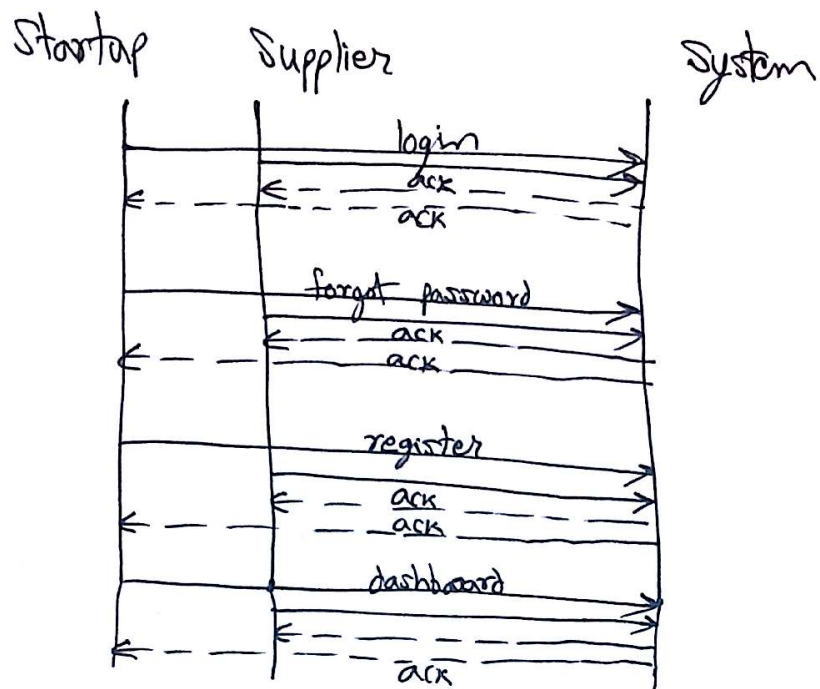 Startup Supplier System
login
ack
ack
forgot password
ack
ack
register
ack
ack
dashboard
ack